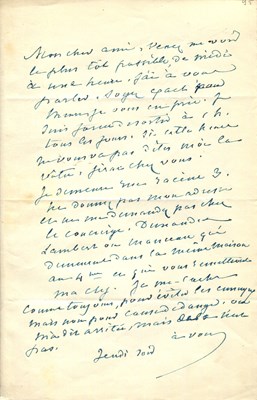 Mon cher ami, venez me voir
le plus tôt possible, de midi
à une heure. J'ai à vous
parler. Soyez exact pour
l'heure je vous en prie. Je
suis forcé de sortir à 1 h.
tous les jours. Si cette heure
ne vous va pas dites moi la
vôtre, j'irai chez vous.
Je demeure rue Racine 3.
Ne donnez pas mon adresse
et ne me demandez pas chez
le concierge. Demandez
Lambert ou Manceau qui
demeurent dans la même maison
au 4me ce qui vous
ma clef. Je me cache
comme toujours, pour éviter les ennuyeux
mais non pour cause de danger. On
m'a dit arrêtée, mais
pas.
Jeudi soir
à vous